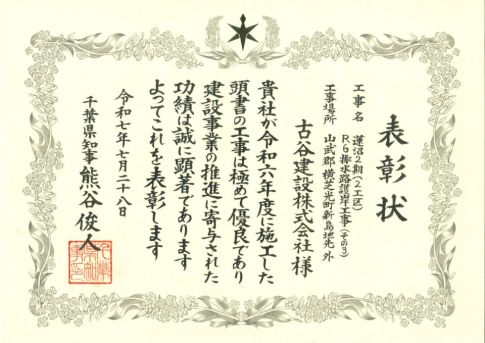 表彰状
工事名 蓮沼2期(2工区)
R6排水路護岸工事(その3)
工事場所 山武郡横芝光町新島地先外
古谷建設株式会社様
貴社が令和六年度に施工した
頭書の工事は極めて優良であり
建設事業の推進に寄与された
功績は誠に顕著であります
よってこれを表彰します
令和七年七月二十八日
千葉県知事 熊谷俊人